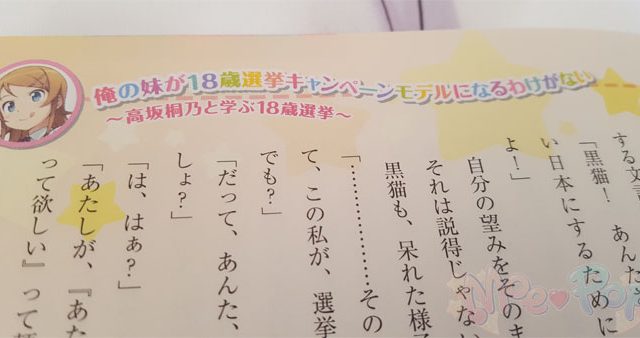 俺の妹が18歳選挙キャンペーンモデルになるわけがない
～高坂桐乃と学ぶ18歳選挙～
「黒猫！　あんた
い日本にするために
よ！」
自分の望みをそのま
それは説得じゃない
黒猫も、呆れた様子
「……………………その
て、この私が、選挙
でも？」
「だって、あんた、
しょ？」
「は、はぁ？」
「あたしが、『あた
って欲しい』って